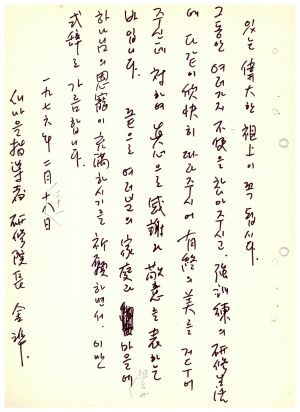 있는 偉大한 祖上이 꼭 됩시다.
그동안 여러가지 不便을 참아주시고, 強訓練의 研修生活
에 다같이 欣快히 따라주시어 有終의 美를 거두어
주신데 対하여 眞心으로 感謝와 敬意를 表하는
바입니다. 끝으로 여러분의 家庭과 마을에
하나님의 恩寵이 充満하시기를 祈願하면서, 이만
式辞를 가름합니다.
一九七六年 二月 十八日
새마을指導者 研修院長 金